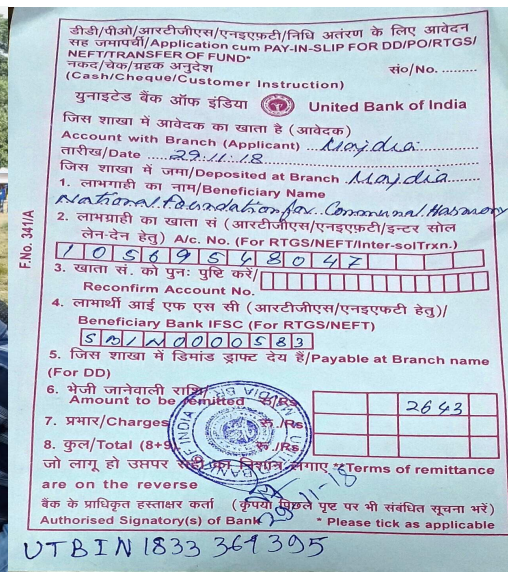 डीडी/पीओ/आरटीजीएस/एनइएफटी/निधि अतंरण के लिए आवेदन
सह जमापर्ची/Application cum PAY-IN-SLIP FOR DD/PO/RTGS/
NEFT/TRANSFER OF FUND*
नकद/चेक/ग्रहक अनुदेश सं०/No. .........
(Cash/Cheque/Customer Instruction)
युनाइटेड बैंक ऑफ इंडिया United Bank of India
जिस शाखा में आवेदक का खाता है (आवेदक)
Account with Branch (Applicant) Majdia
तारीख/Date 29.11.18
जिस शाखा में जमा/Deposited at Branch Majdia
1. लाभगाही का नाम/Beneficiary Name
National Foundation for Communal Harmony
2. लाभग्राही का खाता सं (आरटीजीएस/एनइएफटी/इन्टर सोल
लेन-देन हेतु) A/c. No. (For RTGS/NEFT/Inter-solTrxn.)
10569548047
3. खाता सं. को पुनः पुष्टि करें/
Reconfirm Account No.
4. लाभार्थी आई एफ एस सी (आरटीजीएस/एनइएफटी हेतु)/
Beneficiary Bank IFSC (For RTGS/NEFT)
SBIN0000583
5. जिस शाखा में डिमांड ड्राफ्ट देय हैं/Payable at Branch name
(For DD)
6. भेजी जानेवाली राशि/
Amount to be remitted रू./Rs 2643
7. प्रभार/Charges रू./Rs
8. कुल/Total (8+9) रू./Rs
जो लागू हो उसपर सही का निशान लगाए *Terms of remittance
are on the reverse
29-11-18
बैंक के प्राधिकृत हस्ताक्षर कर्ता (कृपया पिछले पृष्ट पर भी संबंधित सूचना भरें)
Authorised Signatory(s) of Bank * Please tick as applicable
UTBIN1833 369395
F.No. 341/A